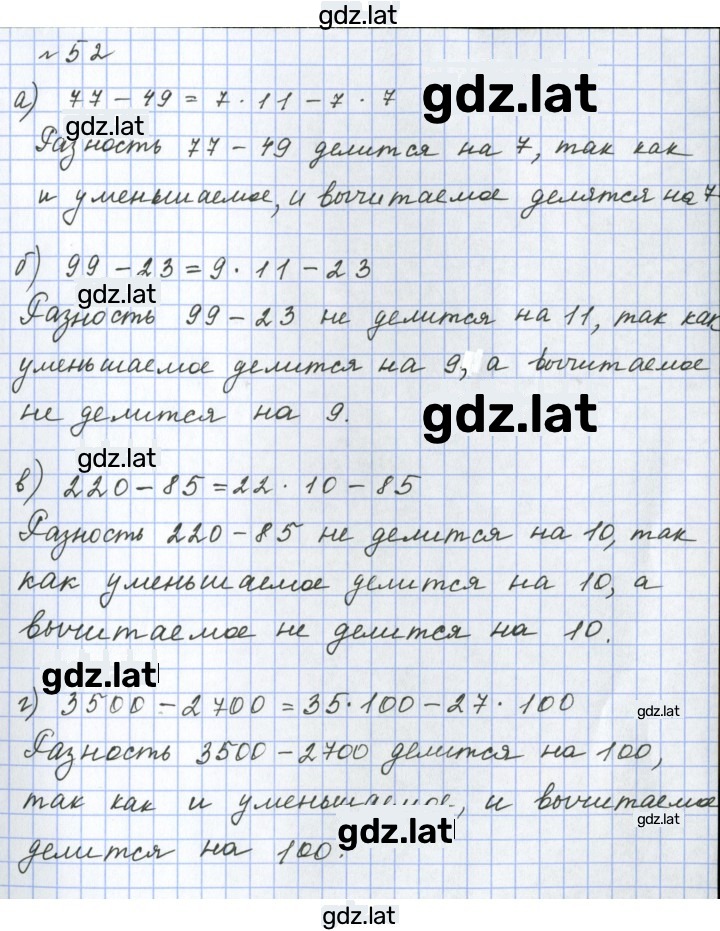 gdz.lat
№ 52
gdz.lat
а) 77 – 49 = 7 · 11 – 7 · 7
gdz.lat
Разность 77 – 49 делится на 7, так как
и уменьшаемое, и вычитаемое делятся на 7
б) 99 – 23 = 9 · 11 – 23
gdz.lat
Разность 99 – 23 не делится на 11, так как
уменьшаемое делится на 9, а вычитаемое
не делится на 9.
gdz.lat
gdz.lat
в) 220 – 85 = 22 · 10 – 85
Разность 220 – 85 не делится на 10, так
как уменьшаемое делится на 10, а
вычитаемое не делится на 10.
gdz.lat
г) 3500 – 2700 = 35 · 100 – 27 · 100
gdz.lat
Разность 3500 – 2700 делится на 100,
так как и уменьшаемое, и вычитаемое
gdz.lat
gdz.lat
делится на 100.
gdz.lat